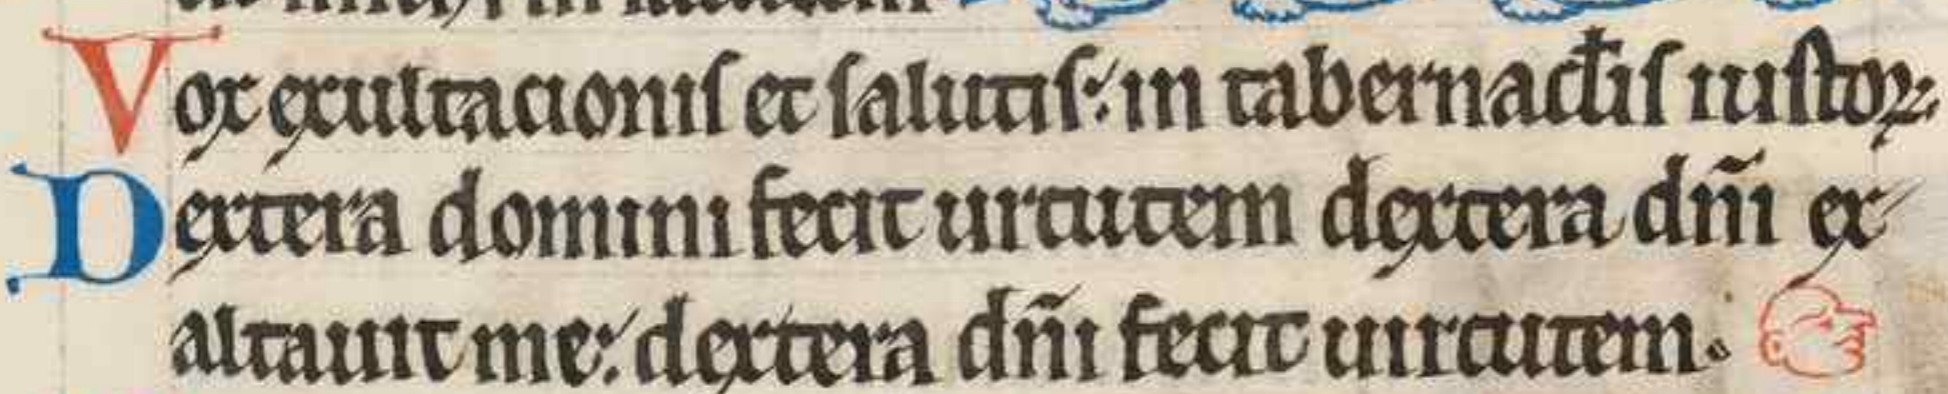 Vox exultacionis et salutis: in tabernac̄lis iustoꝝ.
Dextera domini fecit urtutem dextera dn̄i ex
altauit me: dextera dn̄i fecit uirtutem.